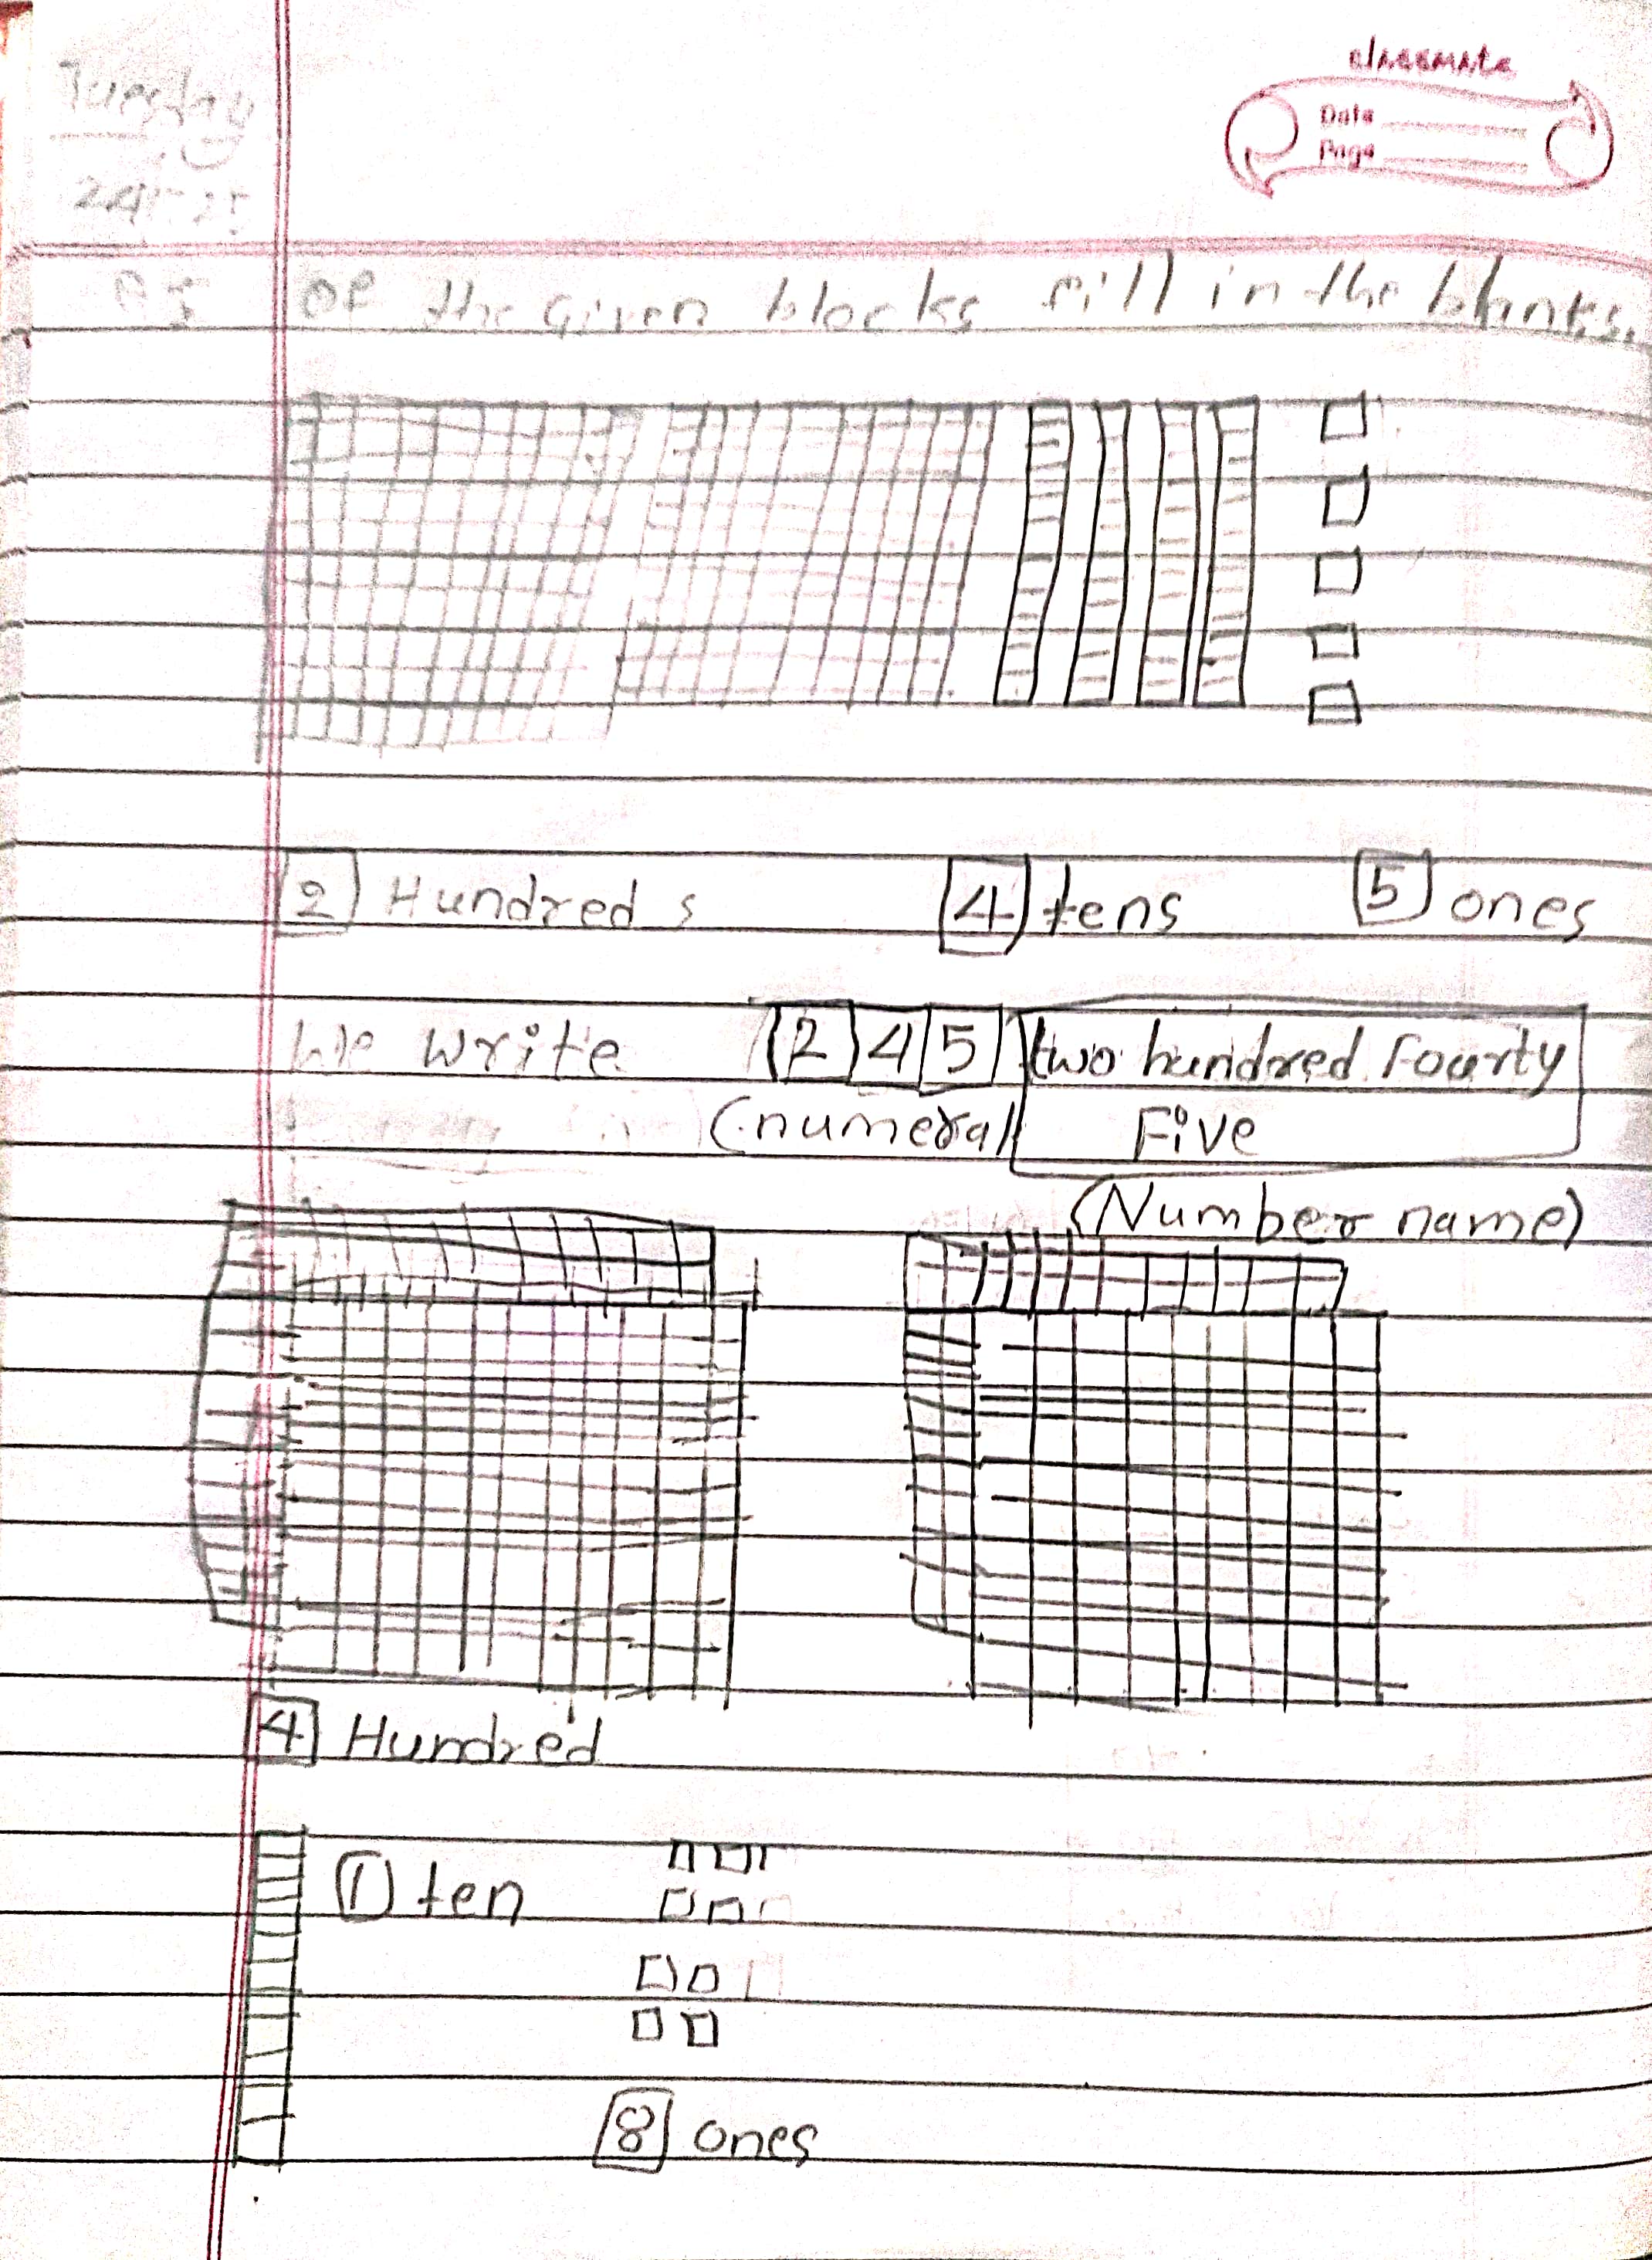 classmate
Date
Page
Tuesday
Of the Given blocks fill in the blanks.
2 Hundreds 4 tens 5 ones
We write 2 4 5 two hundred Fourty
(numeral) Five
(Number name)
4 Hundred
1 ten
8 ones